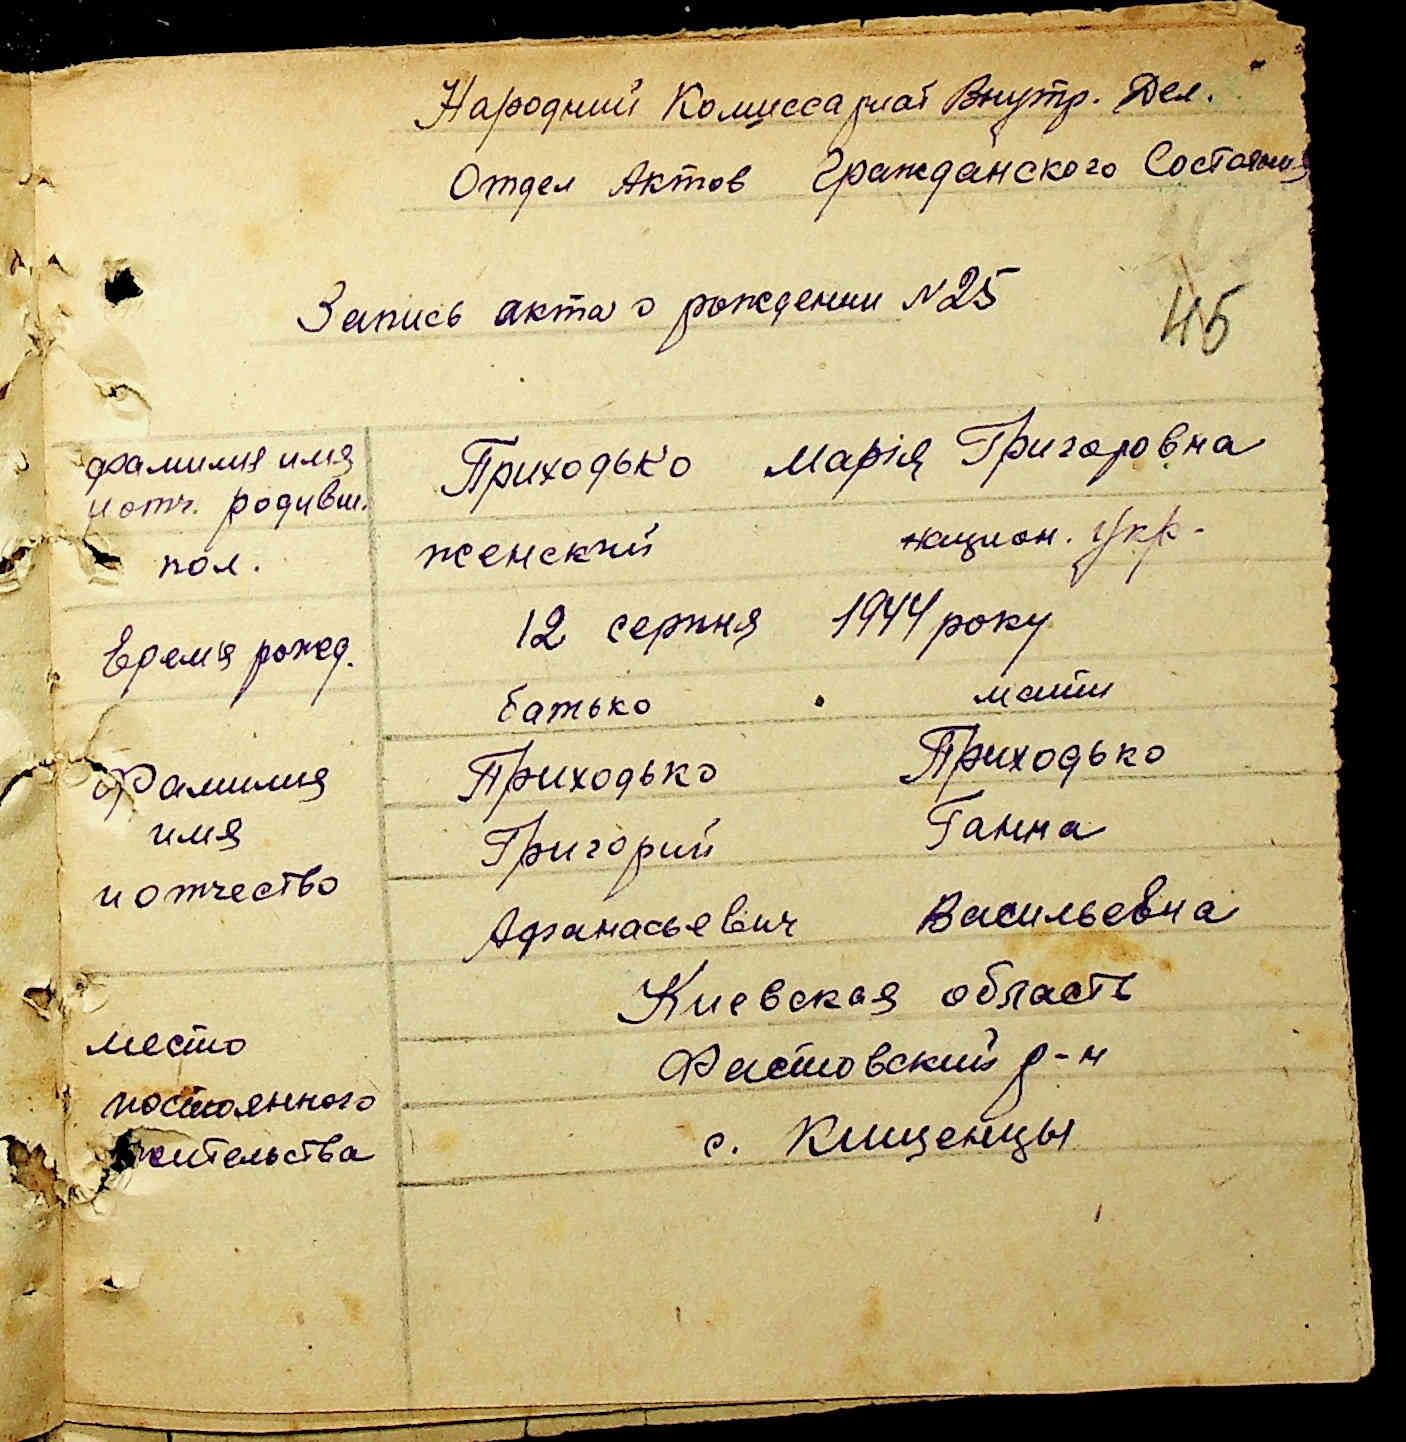 Народний Комиссариат Внутр. Дел.
Отдел Актов Гражданского Состояния
Запись акта о рождении №25
45
фамилия имя
и отч. родивш.
Приходько Марія Григоровна
пол.
женский национ. Укр.
Время рожд.
12 серпня 1944 року
батько мати
Фамилия
Приходько Приходько
имя
Григорий Ганна
и отчество
Афанасьевич Васильевна
Киевская область
место
Фастовский р-н
постоянного
с. Клищенцы
жительства